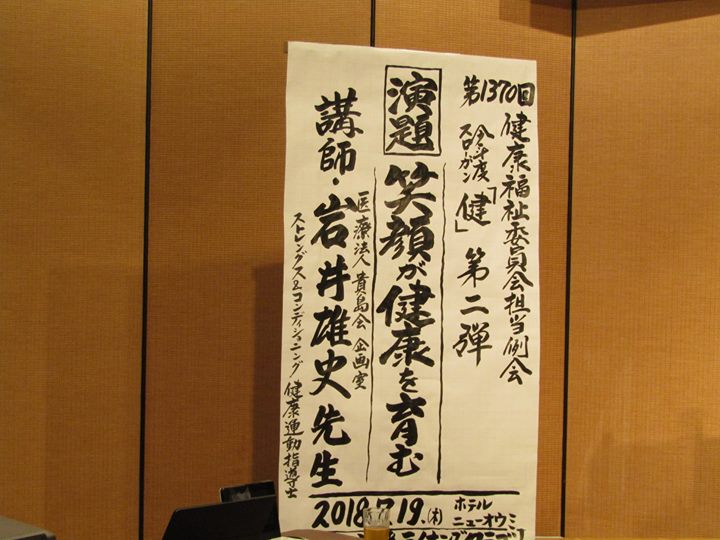 第1370回
健康・福祉委員会担当例会
今年度
スローガン
「健」第二弾
演題
笑顔が健康を育む
医療法人 貴島会 企画室
講師・岩井雄史先生
ストレングス&コンディショニング 健康運動指導士
2018.7.19.(木)
ホテル
ニューオウミ